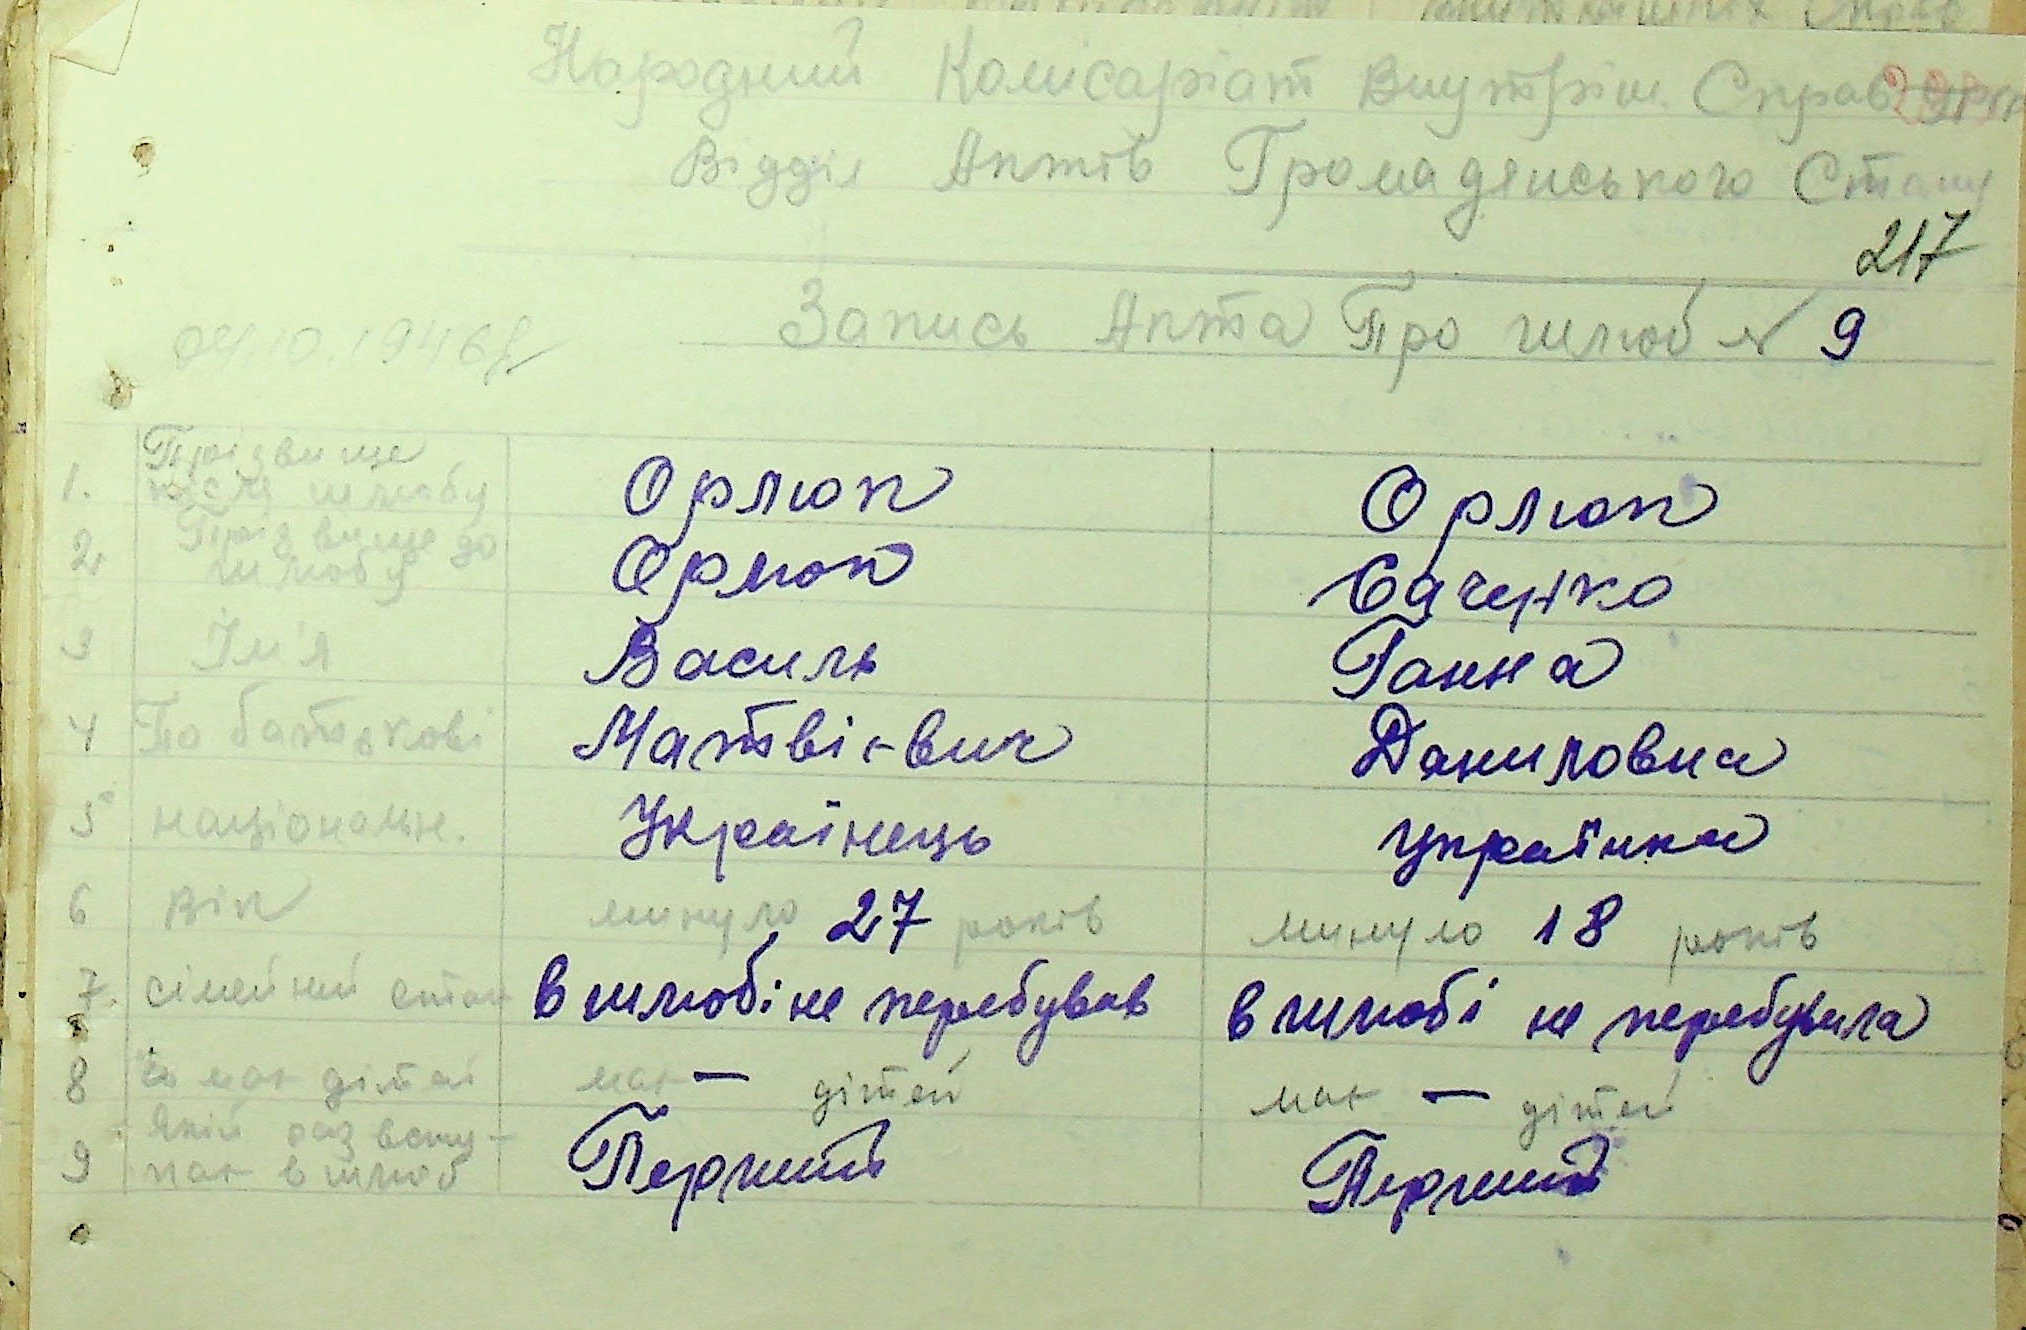 Народний Комісаріат Внутріш. Справ УРСР
Відділ Актів Громадянського Стану
217
04.10.1946р
Запись Акта Про шлюб № 9
1. Прізвище після шлюбу Орлюк Орлюк
2. Прізвище до шлюбу Орлюк Саченко
3 Ім'я Василь Ганна
4 По батькові Матвієвич Даниловна
5 національн. Українець українка
6 вік минуло 27 років минуло 18 років
7. сімейний стан в шлюбі не перебував в шлюбі не перебувала
8 Чи має дітей має — дітей має — дітей
9 Який раз вступає в шлюб Перший Перший